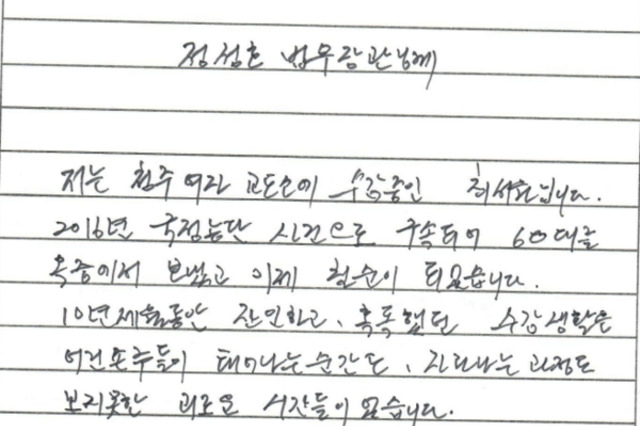 정성호 법무장관님께
저는 청주여자 교도소에 수감중인 최서원입니다.
2016년 국정농단 사건으로 구속되어 60대를
옥중에서 보냈고 이제 칠순이 되었습니다.
10년세월동안 잔인하고, 혹독했던 수감생활은
손주들이 태어나는순간도, 자라나는 과정도
보지못한 괴로운 시간들이 었습니다.